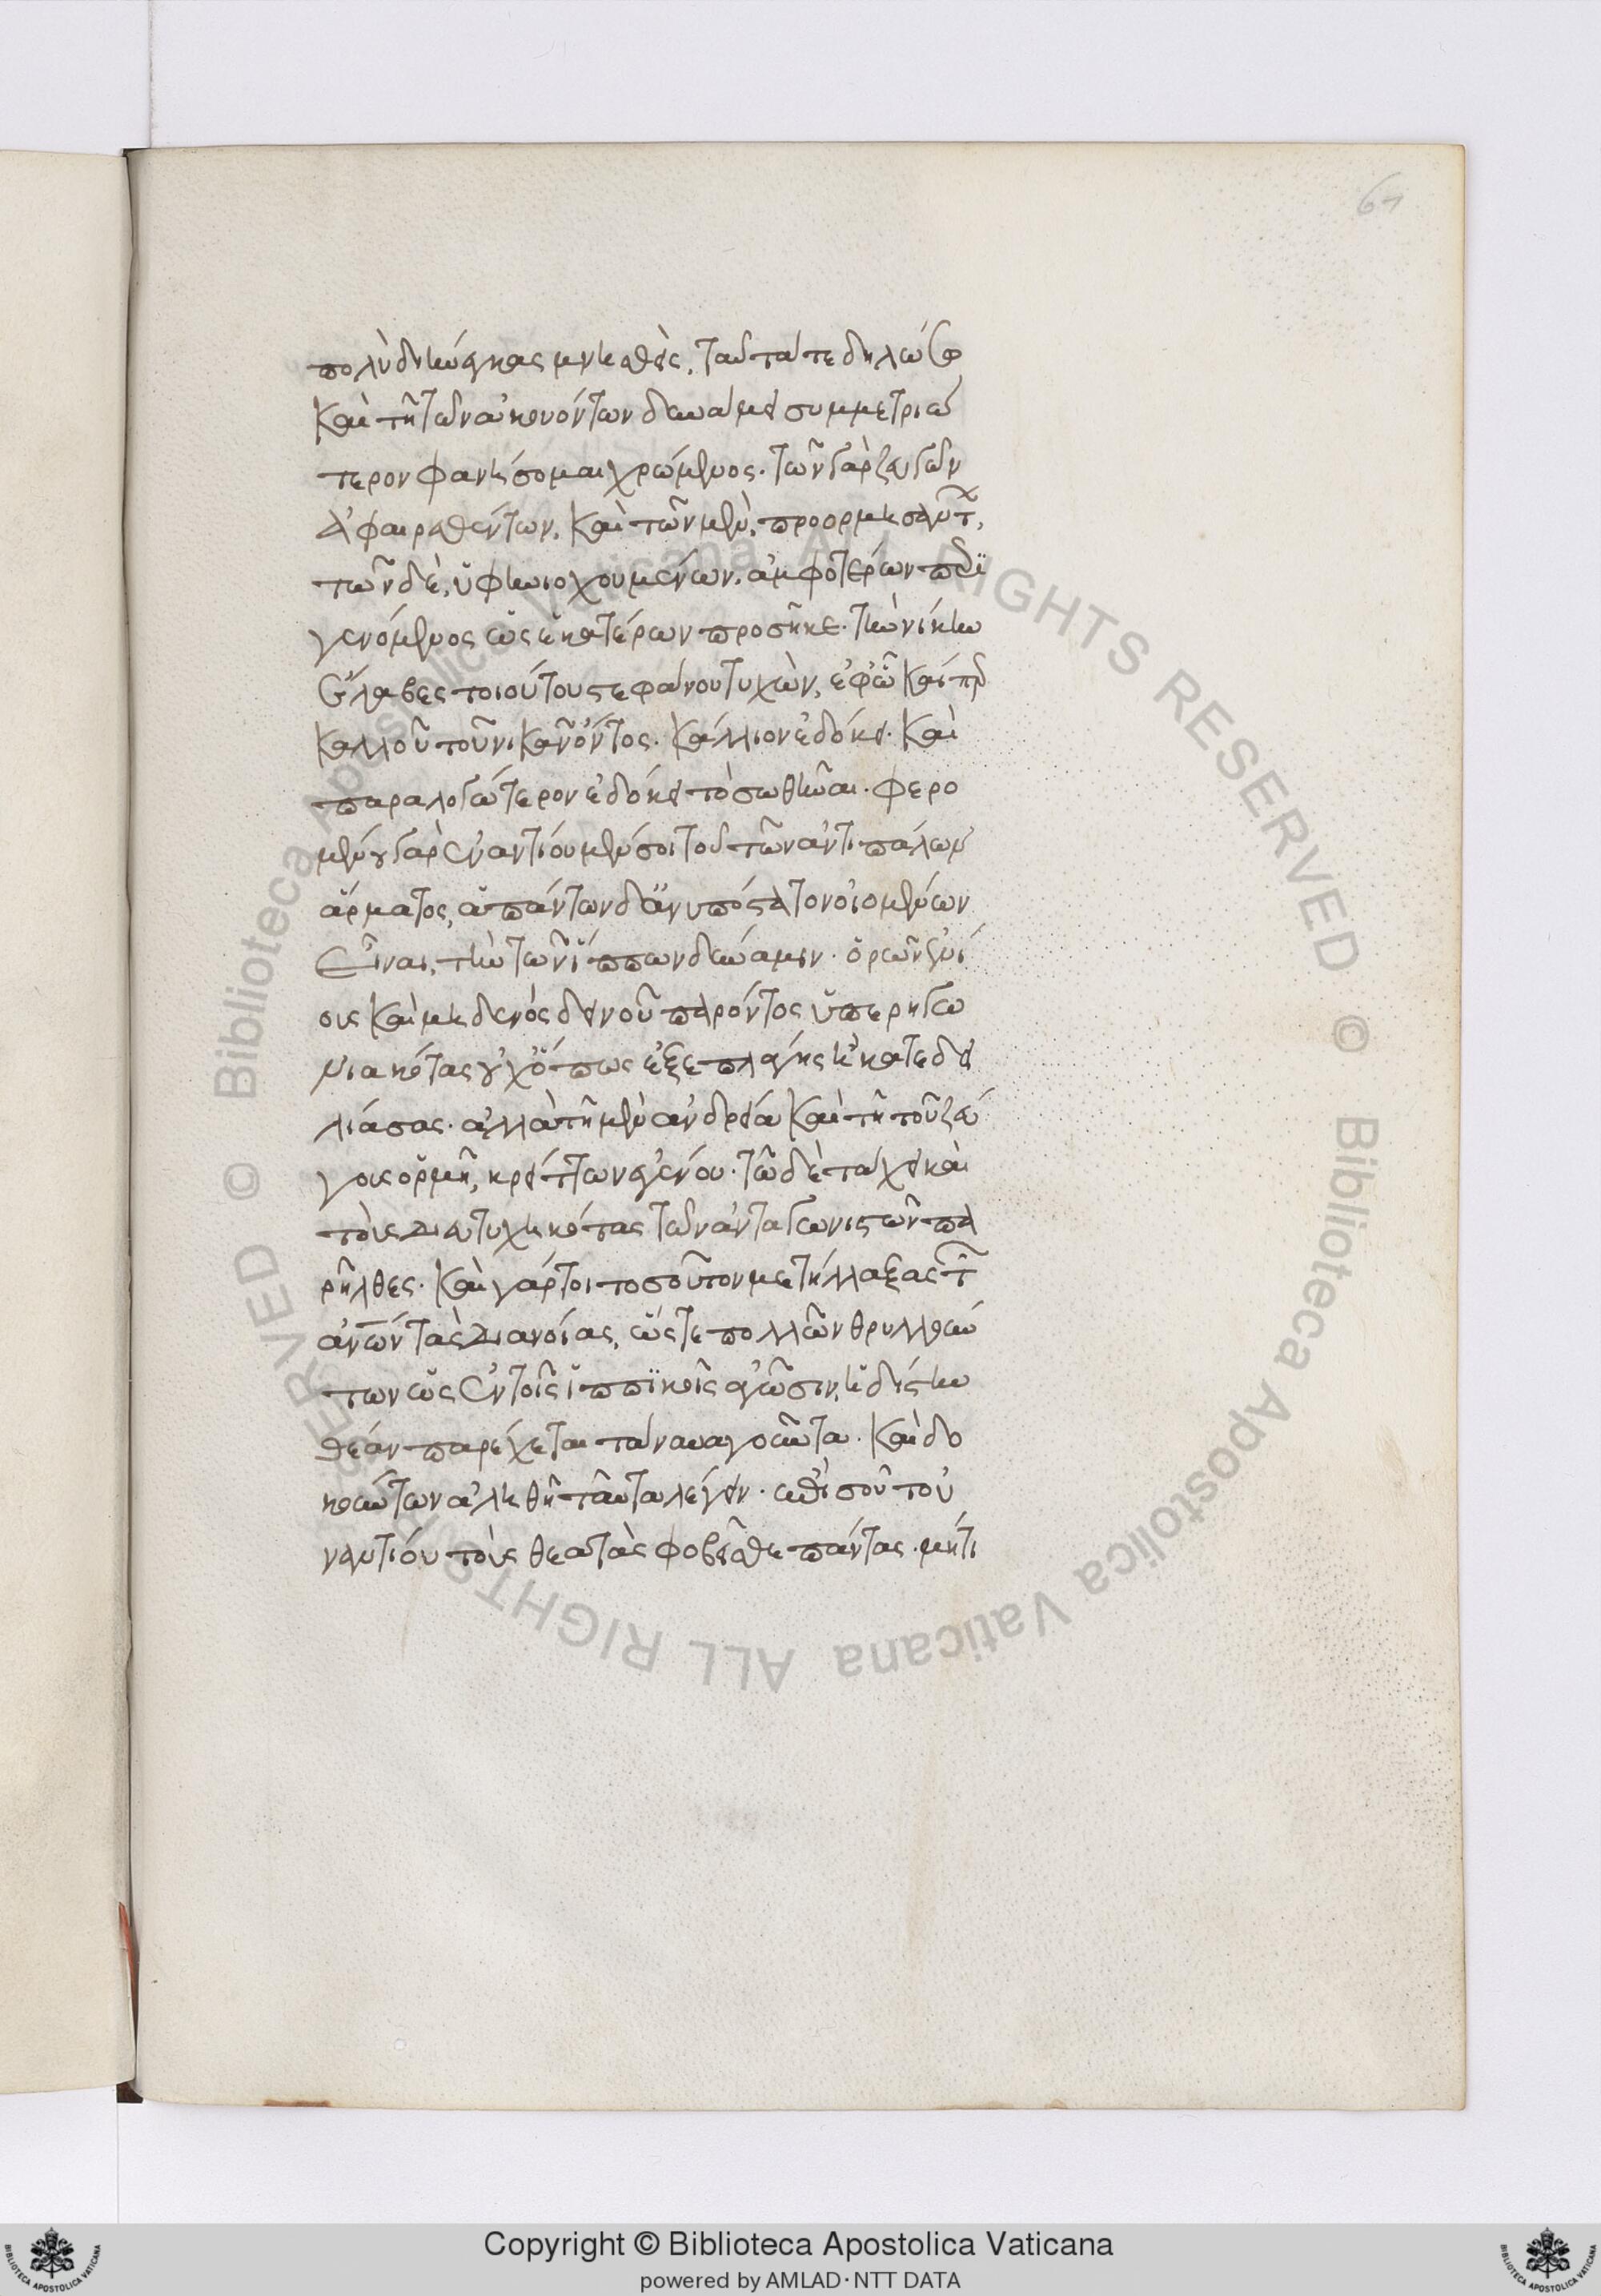 61
πολὺ διήνεγκας μνησθεὶς, ταῦτά τε δηλώσω
καὶ τῇ τῶν ἀκουόντων δυνάμει συμμετρώ
τερον φανήσομαι χρώμενος. τῶν γὰρ ζευγῶν
ἀφαιρεθέντων, καὶ τῶν μὲν, προορμησάντων,
τῶν δὲ, ὑφηνιοχουμένων, ἀμφοτέρων περι
γενόμενος ὡς ἑκατέρων προσῆκε. τὴν νίκην
ἔλαβες τοιούτου στεφάνου τυχὼν, ἐφ' ᾧ καίπερ
καλλοῦ τοῦ νικᾶν ὄντος. κάλλιον ἐδόκει. καὶ
παραλογώτερον ἐδόκει τὸ σωθῆναι. φερο
μένου γὰρ ἐναντίου μέν σοι τοῦ τῶν ἀντιπάλων
ἅρματος, ἁπάντων δ' ἀνυπόστατον οἰομένων
εἶναι, τὴν τῶν ἵππων δύναμιν. ὁρῶν ἐνί
ους καὶ μηδενὸς δεινοῦ παρόντος ὑπερηγω
νιακότας οὐχ ὅπως ἐξεπλάγης ἢ κατεδει
λίασας. ἀλλὰ τῇ μὲν ἀνδρεία καὶ τῇ τοῦ ζεύ
γους ὁρμῇ, κρείττων ἐγένου. τῷ δὲ τάχει καὶ
τοὺς διευτυχηκότας τῶν ἀνταγωνιστῶν πα
ρῆλθες. καὶ γάρ τοι τοσοῦτον μετήλλαξας τῶν
ἀνων τὰς διανοίας, ὥστε πολλῶν θρυλλούν
των ὡς ἐν τοῖς ἱππικοῖς ἀγῶσιν, ἡδίστην
θέαν παρέχεται τὰ ναυαγοῦντα. καὶ δο
κούντων ἀληθῆ ταῦτα λέγειν. ἐπὶ σοῦ τοὐ
ναντίον τοὺς θεατὰς φοβεῖσθε πάντας. μήτι
Copyright © Biblioteca Apostolica Vaticana
powered by AMLAD·NTT DATA